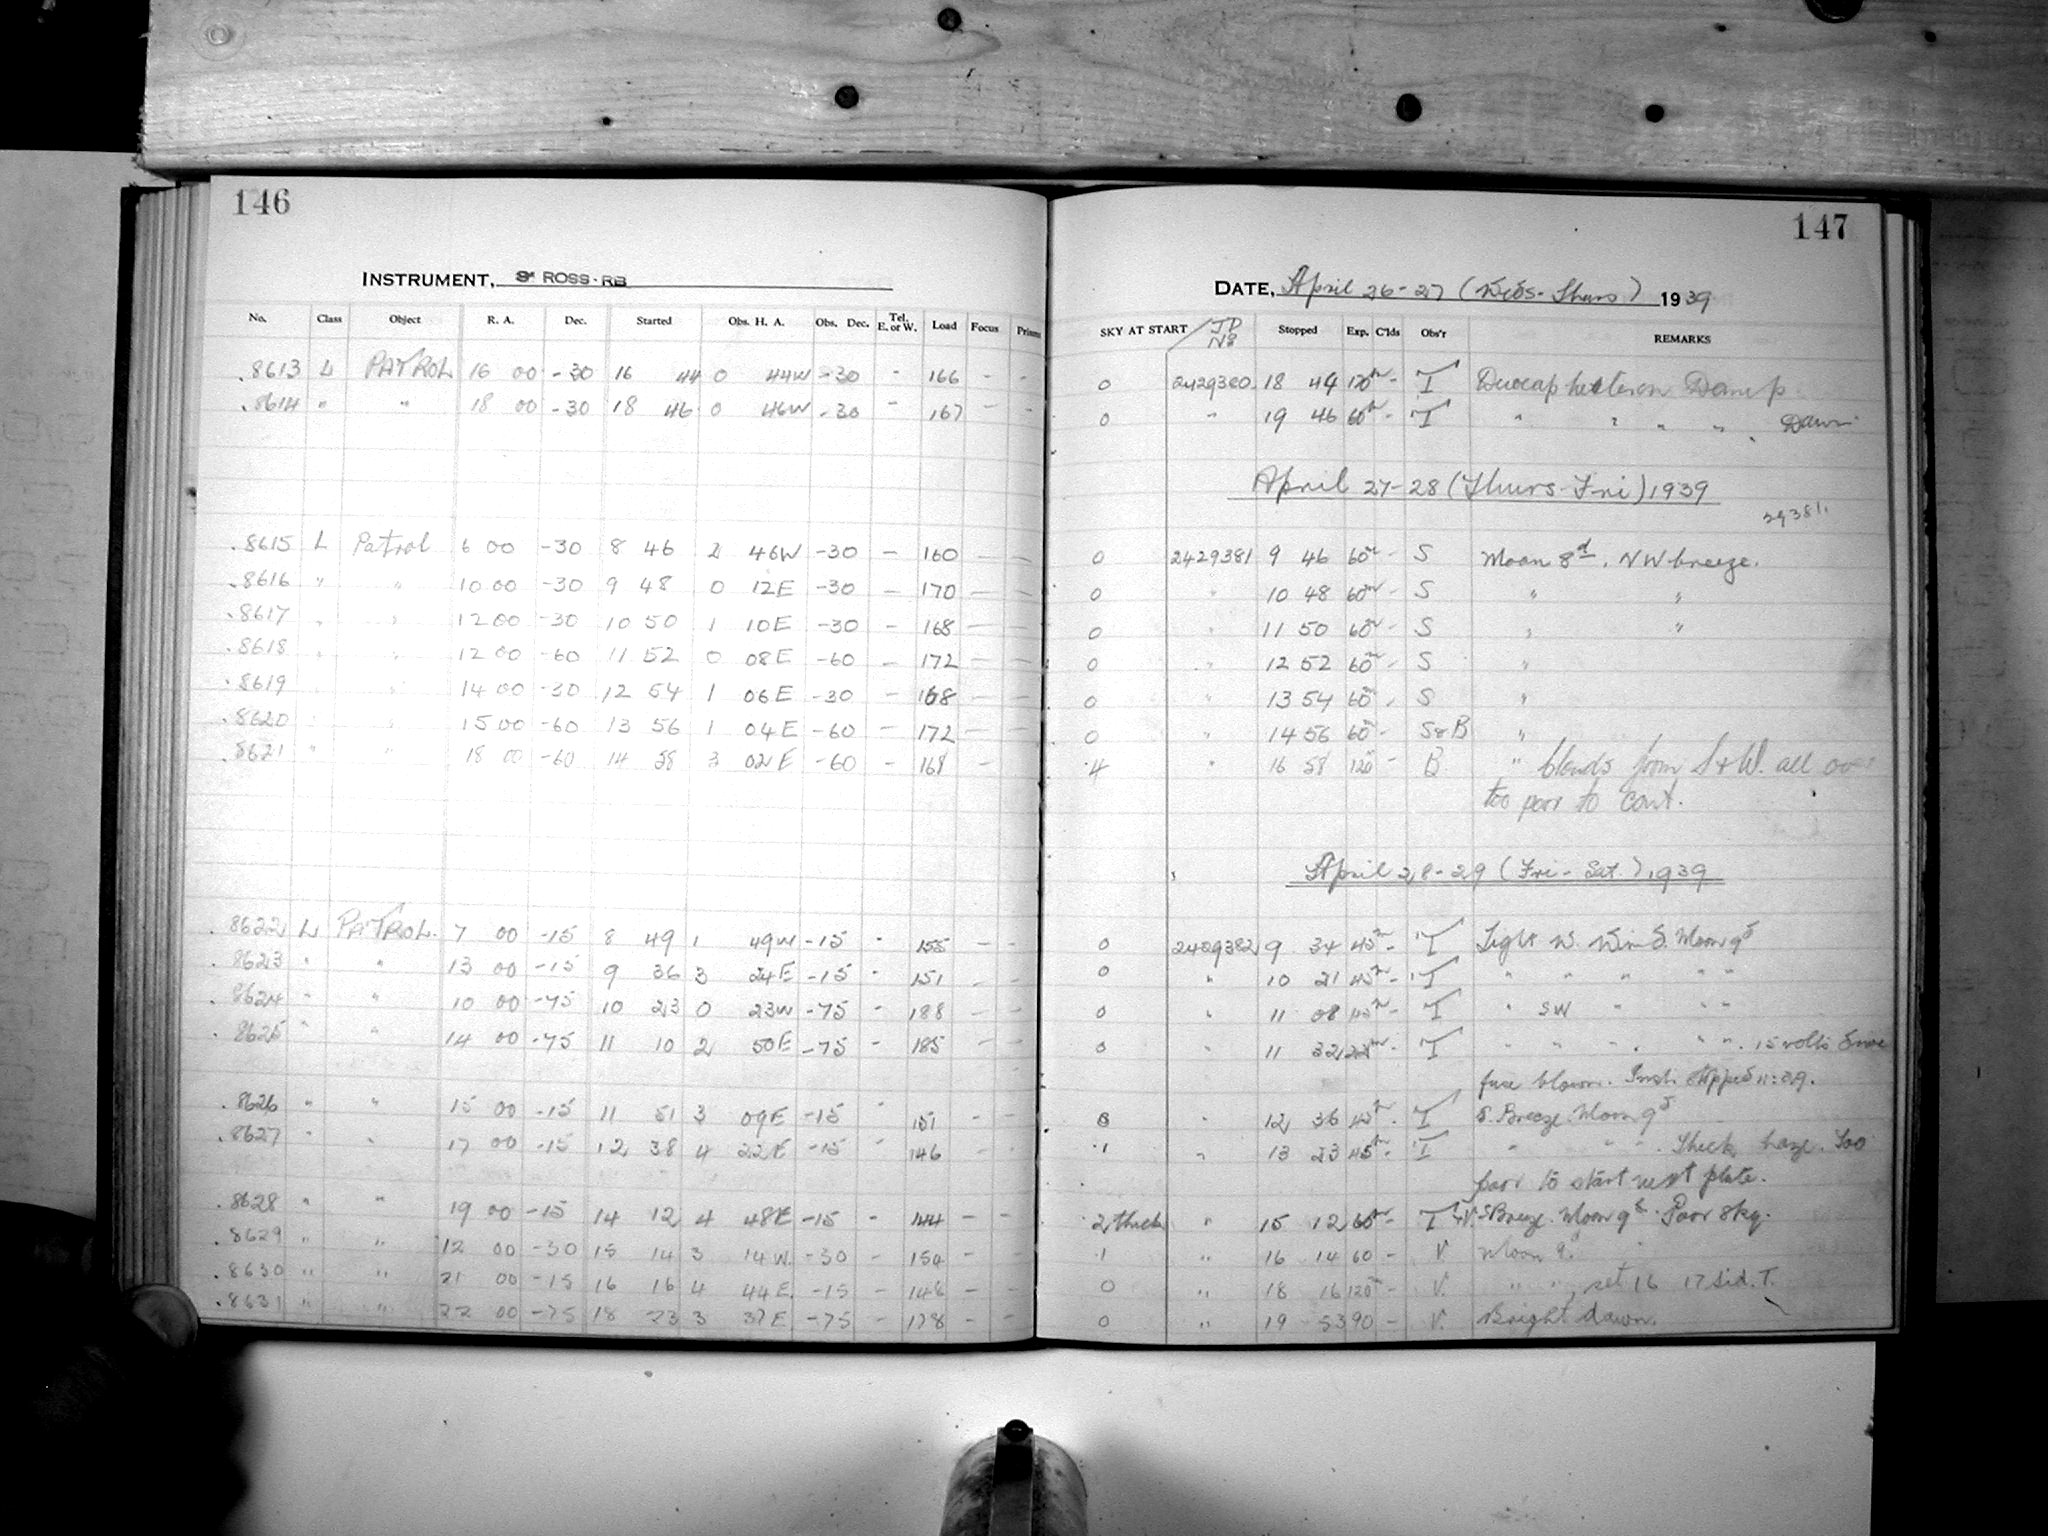 146
INSTRUMENT, ROSS-RB
No. Class Object R. A. Dec. Started Obs. H. A. Obs. Dec. Tel. E. or W. Load Focus Prisms
.8613 L PATROL 16 00 -30 16 44 0 44W -30 - 166 - -
.8614 " " 18 00 -30 18 46 0 46W -30 - 167 - -
.8615 L Patrol 6 00 -30 8 46 2 46W -30 - 160 - -
.8616 " " 10 00 -30 9 48 0 12E -30 - 170 - -
.8617 " " 12 00 -30 10 50 1 10E -30 - 168 - -
.8618 " " 12 00 -60 11 52 0 08E -60 - 172 - -
.8619 " " 14 00 -30 12 54 1 06E -30 - 168 - -
.8620 " " 15 00 -60 13 56 1 04E -60 - 172 - -
.8621 " " 18 00 -60 14 58 3 02E -60 - 168 -
.8622 L PATROL. 7 00 -15 8 49 1 49W -15 - 155 - -
.8623 " " 13 00 -15 9 36 3 24E -15 - 151 - -
.8624 " " 10 00 -75 10 23 0 23W -75 - 188 - -
.8625 " " 14 00 -75 11 10 2 50E -75 - 185 - -
.8626 " " 15 00 -15 11 51 3 09E -15 - 151 - -
.8627 " " 17 00 -15 12 38 4 22E -15 - 146 - -
.8628 " " 19 00 -15 14 12 4 48E -15 - 144 - -
.8629 " " 12 00 -30 15 14 3 14W. -30 - 154 - -
.8630 " " 21 00 -15 16 16 4 44E. -15 - 146 - -
.8631 " " 22 00 -75 18 23 3 37E -75 - 178 - -
147
DATE, April 26-27 (Wed-Thurs) 1939
SKY AT START JD No Stopped Exp. C'lds Obs'r REMARKS
0 2429380 18 44 120m - T Damp
0 " 19 46 60m - T " " " " Dawn
April 27-28 (Thurs-Fri) 1939
29381
0 2429381 9 46 60m - S Moon 8d. NW breeze.
0 " 10 48 60m - S " "
0 " 11 50 60m - S " "
0 " 12 52 60m - S "
0 " 13 54 60m - S "
0 " 14 56 60m - S & B "
4 " 16 58 120m - B " clouds from S & W. all over
too poor to cont.
April 28-29 (Fri-Sat.) 1939
0 2429382 9 34 45m - T Light W. Wind. Moon 9d
0 " 10 21 45m - T " " " " "
0 " 11 08 45m - T " SW " " "
0 " 11 32 22m - T " " " . " ". 15 volts Drive
fuse blown. Inst. Stopped 11:29.
0 " 12 36 45m - T S. Breeze. Moon 9d
1 " 13 23 45m - T " " ". Thick haze. Too
poor to start next plate.
2, thick " 15 12 60m - T & V. S Breeze. Moon 9d. Poor sky.
1 " 16 14 60 - V. Moon 9.
0 " 18 16 120m - V. " " set 16 17 Sid. T.
0 " 19 53 90 - V. Bright dawn.